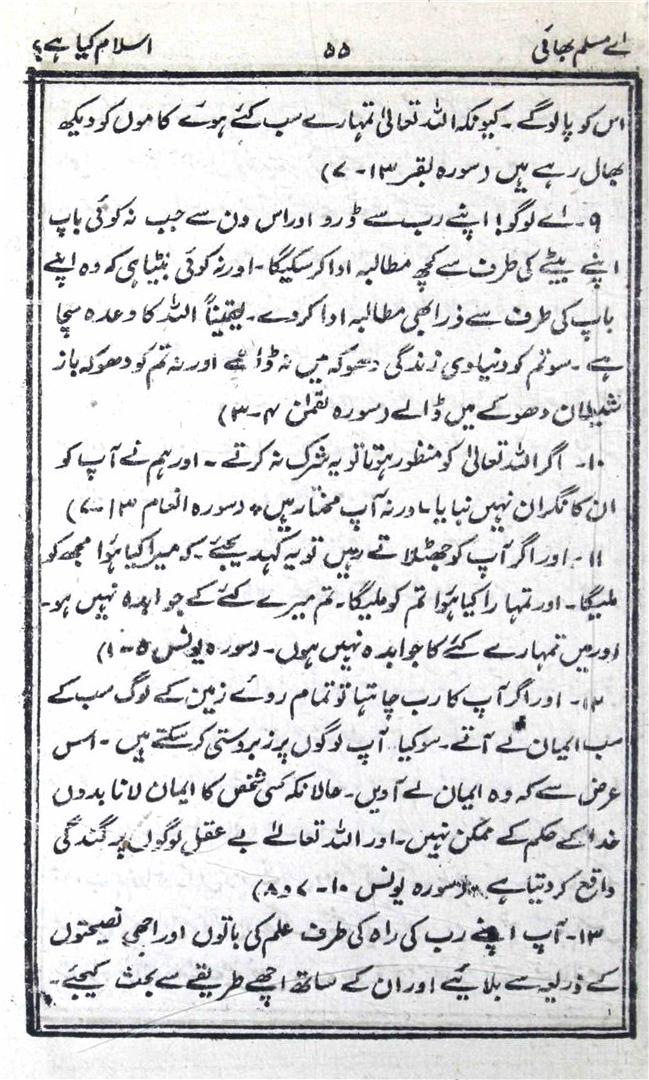 اے مسلم بھائی ۵۵ اسلام کیا ہے؟
اس کو پالوگے۔ کیونکہ اللہ تعالیٰ تمہارے سب کئے ہوے کاموں کو دیکھ
بھال رہے ہیں (سورہ بقر ۱۳-۷)
۹۔ اے لوگو! اپنے رب سے ڈرو اور اس دن سے جب نہ کوئی باپ
اپنے بیٹے کی طرف سے کچھ مطالبہ ادا کر سکیگا۔ اور نہ کوئی بیٹا ہی کہ وہ اپنے
باپ کی طرف سے ذرا بھی مطالبہ ادا کر دے۔ یقیناً اللہ کا وعدہ سچا
ہے۔ سو تم کو دنیاوی زندگی دھوکہ میں نہ ڈالے اور نہ تم کو دھوکہ باز
شیطان دھوکے میں ڈالے (سورہ لقمٰن ۴-۳)
۱۰۔ اگر اللہ تعالیٰ کو منظور ہوتا تو یہ شرک نہ کرتے۔ اور ہم نے آپ کو
ان کا نگران نہیں بنایا۔ اور نہ آپ مختار ہیں (سورہ انعام ۱۳-۷)
۱۱۔ اور اگر آپ کو جھٹلاتے رہیں تو یہ کہدیجئے۔ کہ میرا کیا ہوٴا مجھ کو
ملیگا۔ اور تمہارا کیا ہوٴا تم کو ملیگا۔ تم میرے کئے کے جوابدہ نہیں ہو۔
اور میں تمہارے کئے کا جوابدہ نہیں ہوں۔ (سورہ یونس ۵-۱)
۱۲۔ اور اگر آپ کا رب چاہتا تو تمام روے زمین کے لوگ سب کے
سب ایمان لے آتے۔ سو کیا آپ لوگوں پر زبردستی کر سکتے ہیں۔ اس
غرض سے کہ وہ ایمان لے آویں۔ حالانکہ کسی شخص کا ایمان لانا بدوں
خدا کے حکم کے ممکن نہیں۔ اور اللہ تعالےٰ بے عقل لوگوں پر گندگی
واقع کر دیتا ہے (سورہ یونس ۱۰-۷ و ۸)
۱۳۔ آپ اپنے رب کی راہ کی طرف علم کی باتوں اور اچھی نصیحتوں
کے ذریعہ سے بلائیے اور ان کے ساتھ اچھے طریقے سے بحث کیجئے۔